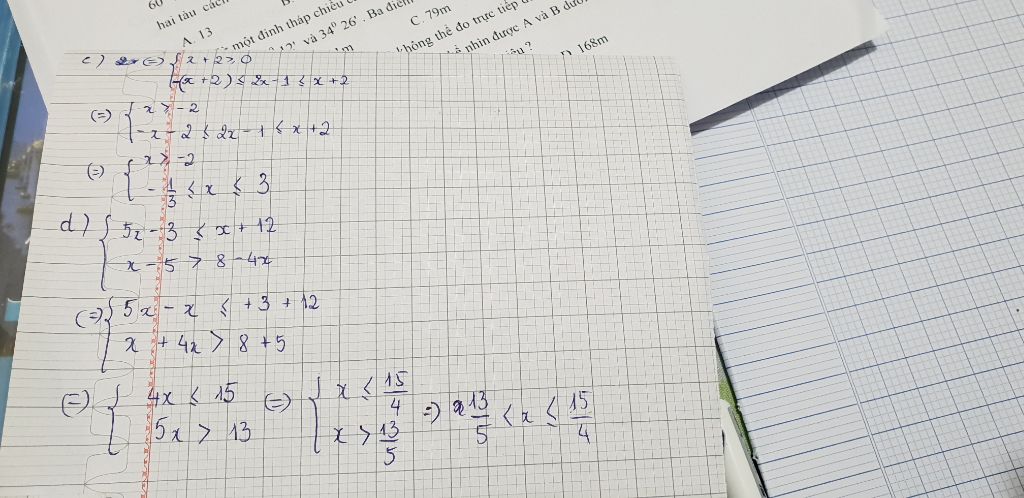 60
hai tàu cách
B.
A. 13
một đỉnh tháp chiều c
và 34⁰ 26'. Ba điểm
C. 79m
không thể đo trực tiếp
nhìn được A và B dưới
D. 168m
c) (=) { x + 2 ≥ 0
-(x + 2) ≤ 2x - 1 ≤ x + 2
(=) { x ≥ -2
-x - 2 ≤ 2x - 1 ≤ x + 2
(=) { x ≥ -2
- 1/3 ≤ x ≤ 3
d) { 5x - 3 ≤ x + 12
x - 5 > 8 - 4x
(=) { 5x - x ≤ +3 + 12
x + 4x > 8 + 5
(=) { 4x ≤ 15 (=) { x ≤ 15/4 =) 13/5 < x ≤ 15/4
5x > 13 x > 13/5